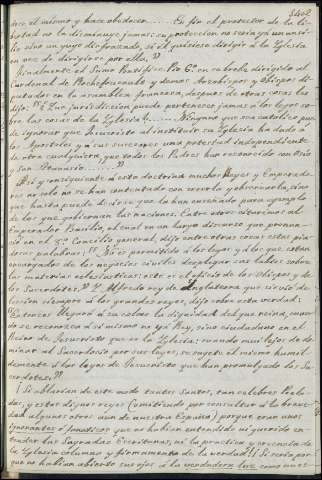 dece, el mismo y hace obedecer......... En fin el protector de la li-
bertad no la disminuye jamas: su proteccion no seria ya un auxi-
lio sino un yugo disfrazado, si él quisiese dirigir á la Yglesia
en vez de dirigirse por ella."
Finalmente el Sumo Pontifice Pio 6.º en su breve dirigido al
Cardenal de Rochefoucauld y demas Arzobispos y Obispos di-
putados en la asamblea francesa, despues de otras cosas les
dijo: "¿ Que jurisdiccion puede pertenecer jamas á los legos so-
bre las cosas de la Yglesia?...... Ninguno que sea catolico pue-
de ignorar que Jesucristo al instituir su Yglesia ha dado á
los Apostoles y á sus sucesores una potestad independiente
de otra cualquiera, que todos los Padres han reconocido con Osio
y San Atanasio........."
Asi y consiguiente á esta doctrina muchos Reyes y Emperado-
res no solo no se han contentado con creerla y observarla, sino
que hasta puede decirse que la han enseñado para egemplo
de los que gobiernan las naciones. Entre otros citaremos al
Emperador Basilio, el cual en un largo discurso que pronun-
ció en el Concilio general, dijo entre otras cosas estas pala-
bras: "No es permitido á los legos y á los que estan
encargados de los negocios civiles desplegar sus labios sobre
las materias eclesiasticas: este es el oficio de los Obispos y de
los Sacerdotes." Y Alfredo rey de Ynglaterra que sirvió de
leccion siempre á los grandes reyes, dijo sobre esta verdad:
"Entonces llegará á su colmo la dignidad del que reina, cuan-
do se reconozca á si mismo no ya Rey, sino ciudadano en el
Reino de Jesucristo que es la Yglesia: cuando muy lejos de do-
minar al Sacerdocio por sus leyes, se sugeta el mismo humil-
demente á las leyes de Jesucristo que han promulgado los Sa-
cerdotes."
¡ Si ablarian de este modo tantos Santos, tan celebres Prela-
dos, y estos dignos reyes (omitiendo por consultar á la breve-
dad algunos otros aun de nuestra España) porque eran unos
ignorantes y fanaticos que no habian entendido ni querido en-
tender las Sagradas Escrituras, ni la practica y creencia de
la Yglesia columna y firmamento de la verdad!! Si seria por-
que no habian abierto sus ojos á la verdadera luz como nues-